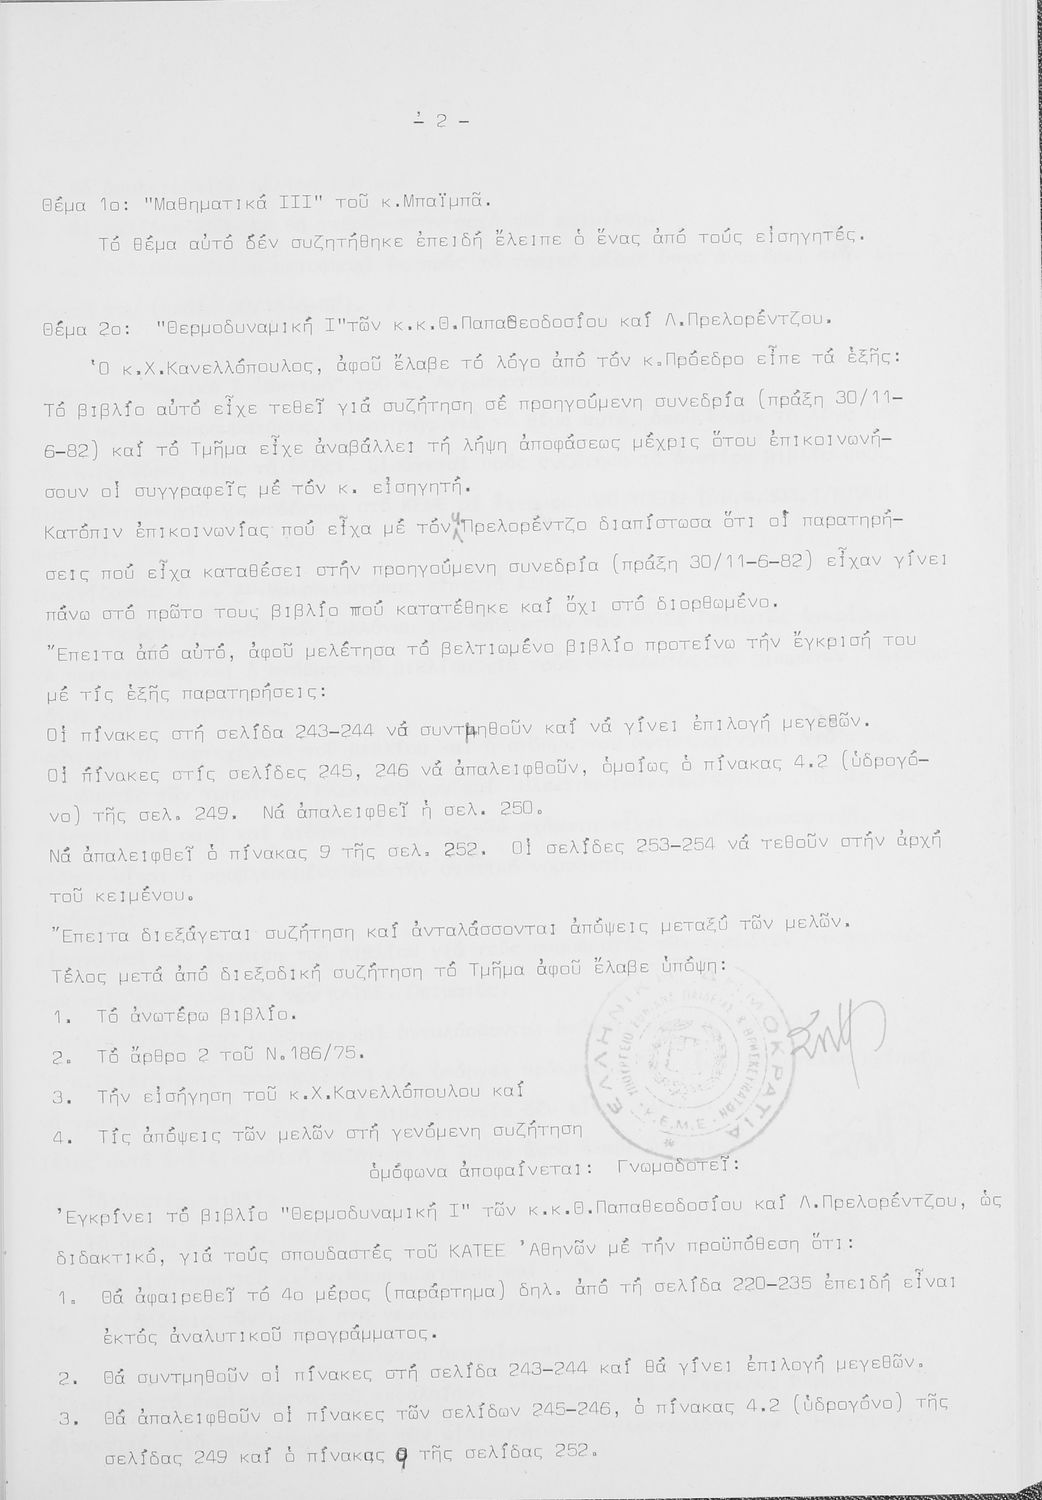 - 2 -
Θέμα 1ο: "Μαθηματικά III" τοῦ κ.Μπαϊμπᾶ.
Τό θέμα αὐτό δέν συζητήθηκε ἐπειδή ἔλειπε ὁ ἕνας ἀπό τούς εἰσηγητές.
Θέμα 2ο: "Θερμοδυναμική I"τῶν κ.κ.Θ.Παπαθεοδοσίου καί Λ.Πρελορέντζου.
Ὁ κ.Χ.Κανελλόπουλος, ἀφοῦ ἔλαβε τό λόγο ἀπό τόν κ.Πρόεδρο εἶπε τά ἑξῆς:
Τό βιβλίο αὐτό εἶχε τεθεῖ γιά συζήτηση σέ προηγούμενη συνεδρία (πράξη 30/11-
6-82) καί τό Τμῆμα εἶχε ἀναβάλλει τή λήψη ἀποφάσεως μέχρις ὅτου ἐπικοινωνή-
σουν οἱ συγγραφεῖς μέ τόν κ. εἰσηγητή.
Κατόπιν ἐπικοινωνίας πού εἶχα μέ τόν Πρελορέντζο διαπίστωσα ὅτι οἱ παρατηρή-
σεις πού εἶχα καταθέσει στήν προηγούμενη συνεδρία (πράξη 30/11-6-82) εἶχαν γίνει
πάνω στό πρῶτο τους βιβλίο πού κατατέθηκε καί ὄχι στό διορθωμένο.
Ἔπειτα ἀπό αὐτό, ἀφοῦ μελέτησα τό βελτιωμένο βιβλίο προτείνω τήν ἔγκρισή του
μέ τίς ἑξῆς παρατηρήσεις:
Οἱ πίνακες στή σελίδα 243-244 νά συντμηθοῦν καί νά γίνει ἐπιλογή μεγεθῶν.
Οἱ πίνακες στίς σελίδες 245, 246 νά ἀπαλειφθοῦν, ὁμοίως ὁ πίνακας 4.2 (ὑδρογό-
νο) τῆς σελ. 249. Νά ἀπαλειφθεῖ ἡ σελ. 250.
Νά ἀπαλειφθεῖ ὁ πίνακας 9 τῆς σελ. 252. Οἱ σελίδες 253-254 νά τεθοῦν στήν ἀρχή
τοῦ κειμένου.
Ἔπειτα διεξάγεται συζήτηση καί ἀνταλάσσονται ἀπόψεις μεταξύ τῶν μελῶν.
Τέλος μετά ἀπό διεξοδική συζήτηση τό Τμῆμα ἀφοῦ ἔλαβε ὑπόψη:
1. Τό ἀνωτέρω βιβλίο.
2. Τό ἄρθρο 2 τοῦ Ν.186/75.
3. Τήν εἰσήγηση τοῦ κ.Χ.Κανελλόπουλου καί
4. Τίς ἀπόψεις τῶν μελῶν στή γενόμενη συζήτηση
ΕΛΛΗΝΙΚΗ ΔΗΜΟΚΡΑΤΙΑ
ΥΠΟΥΡΓΕΙΟ ΕΘΝΙΚΗΣ ΠΑΙΔΕΙΑΣ & ΘΡΗΣΚΕΥΜΑΤΩΝ
Κ.Ε.Μ.Ε.
ὁμόφωνα ἀποφαίνεται: Γνωμοδοτεῖ:
Ἐγκρίνει τό βιβλίο "Θερμοδυναμική I" τῶν κ.κ.Θ.Παπαθεοδοσίου καί Λ.Πρελορέντζου, ὡς
διδακτικό, γιά τούς σπουδαστές τοῦ ΚΑΤΕΕ Ἀθηνῶν μέ τήν προϋπόθεση ὅτι:
1. Θά ἀφαιρεθεῖ τό 4ο μέρος (παράρτημα) δηλ. ἀπό τή σελίδα 220-235 ἐπειδή εἶναι
ἐκτός ἀναλυτικοῦ προγράμματος.
2. Θά συντμηθοῦν οἱ πίνακες στή σελίδα 243-244 καί θά γίνει ἐπιλογή μεγεθῶν.
3. Θά ἀπαλειφθοῦν οἱ πίνακες τῶν σελίδων 245-246, ὁ πίνακας 4.2 (ὑδρογόνο) τῆς
σελίδας 249 καί ὁ πίνακας 9 τῆς σελίδας 252.